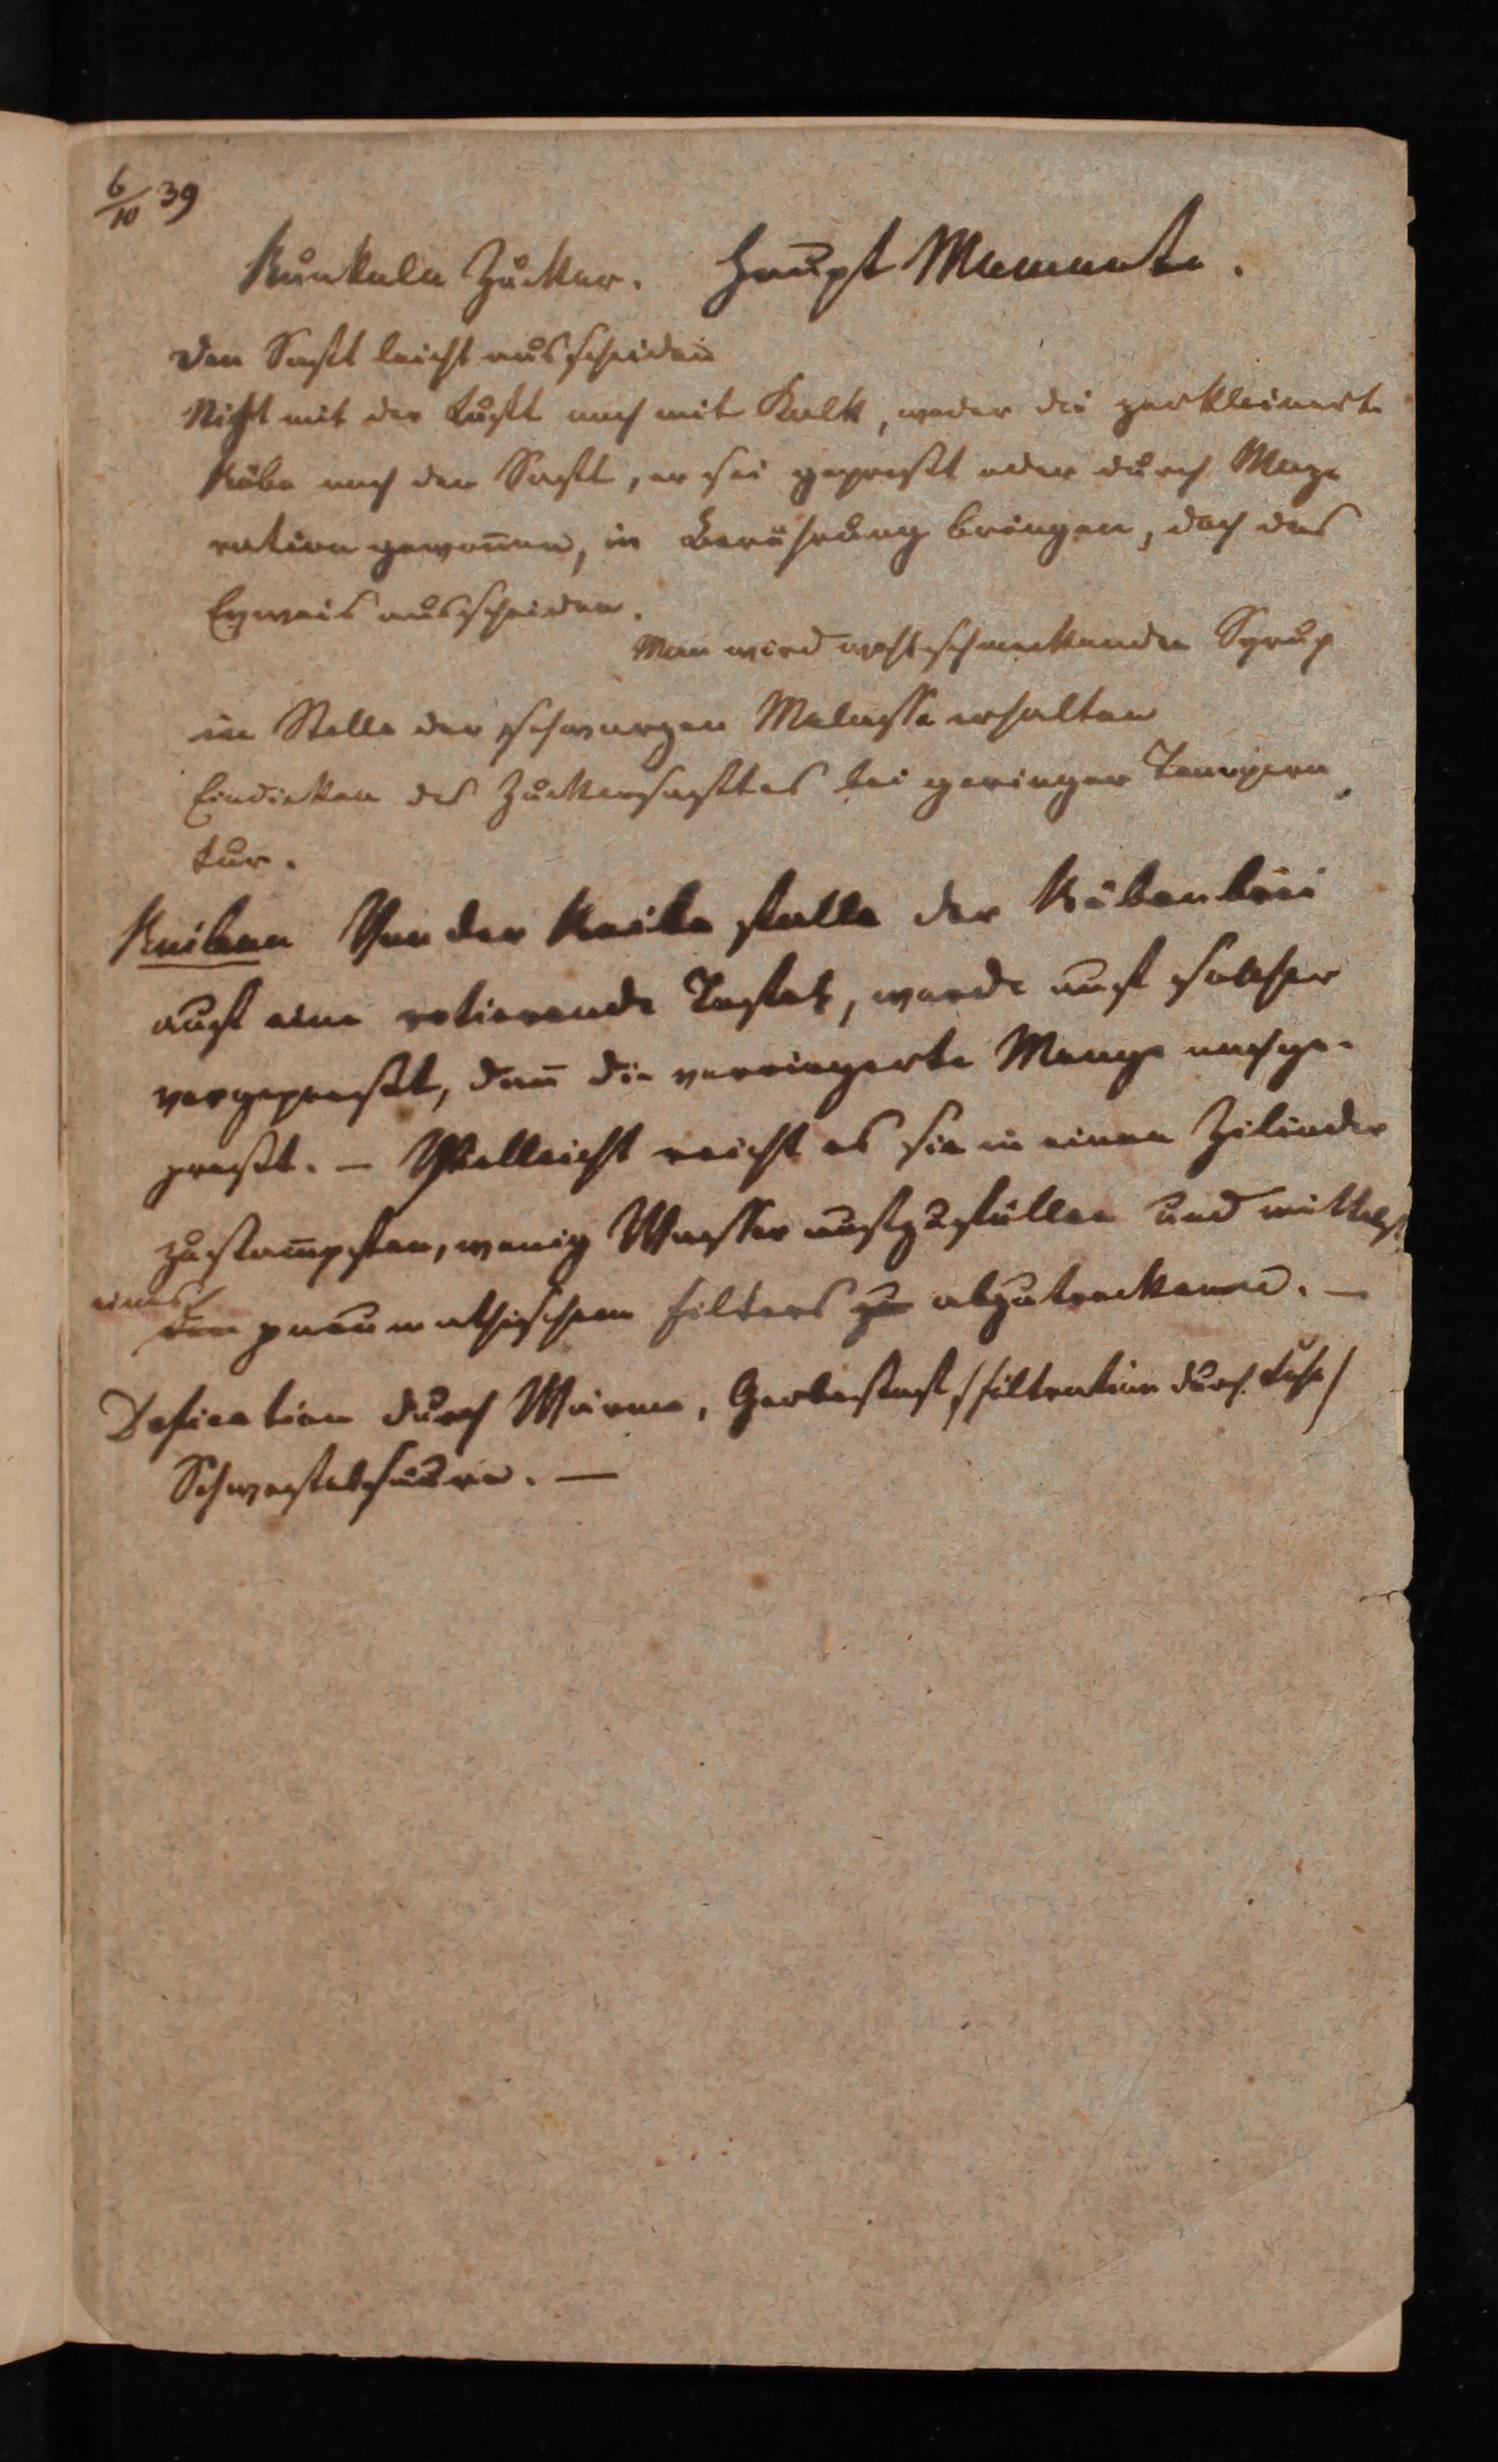 6/10 39
Runkeln Zucker. Haupt Momente.
Den Saft leicht ausscheiden
Nicht mit der Luft noch mit Kalk, weder die zerkleinert
Rübe noch den Saft, er sei gepreßt oder durch Maze
ration gewonnen, in Berührung bringen, doch das
Eyweis ausscheiden.
Man wird wohlschmeckenden Syrup
in Stelle der schwarzen Melasse erhalten
Eindicken des Zuckersaftes bei geringer Tempera
tur.
Reiben Von der Reibe falle der Rübenbrei
auf eine rotierende, werde auf solcher
vorgepreßt, dann die verringerte Menge nachge-
preßt. – Vielleicht reicht es sie in einen Zilinder
zustampfen, wenig Wasser aufzufüllen und mittelst
eines
den pneumathischen Filters zu abzutrocknen. –
Defication durch Wärme, Gerbestoff, /Filtration durch/
Schwefelsäure. —